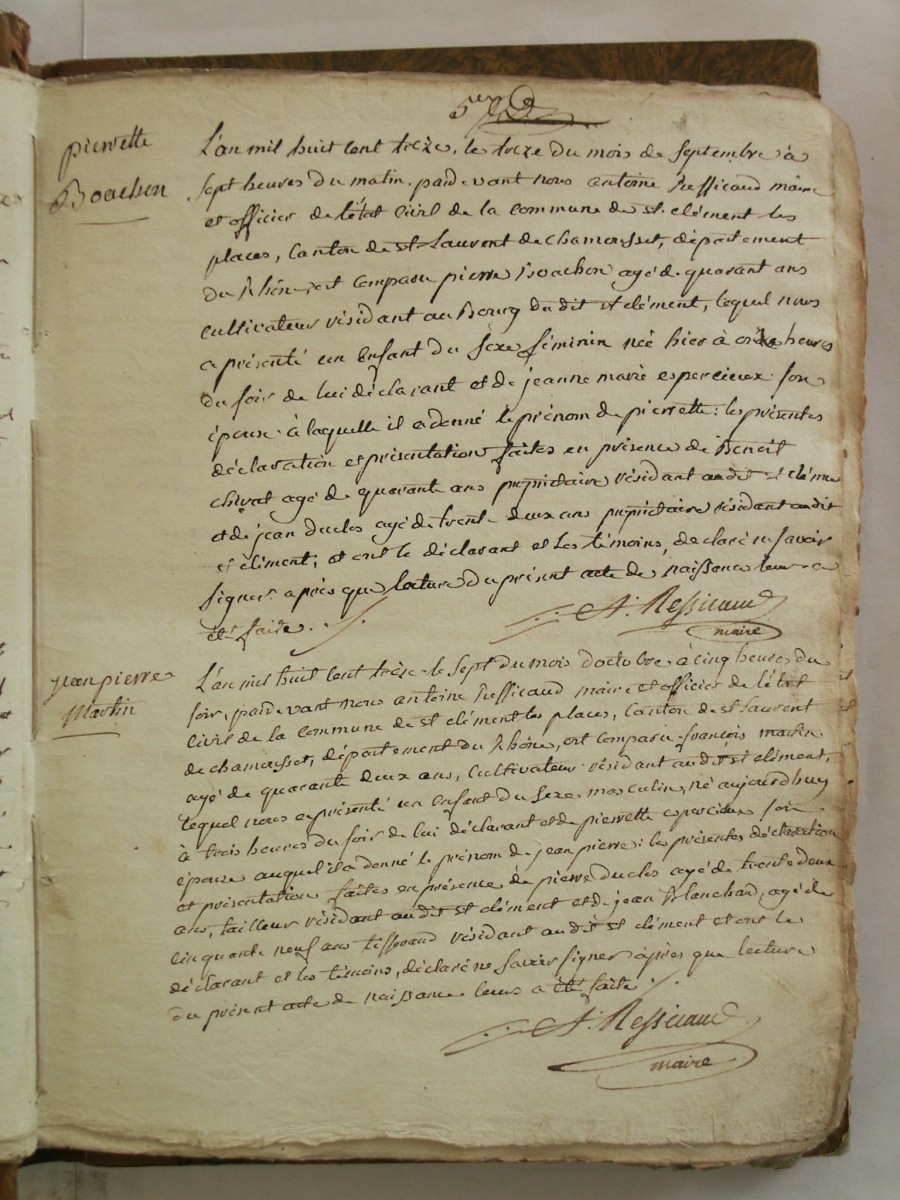 5e
pierrette
Boachon
L'an mil huit cent treze, le treze du mois de septembre à
sept heures du matin, pardevant nous antoine Ressicaud maire
et officier de létat civil de la commune de st. clément les
places, Canton de st Laurent de chamousset, département
du Rhône, est comparu pierre Boachon agé de quarant ans
cultivateur résidant au Bourg dudit st clément, lequel nous
a présenté un Enfant du sexe féminin née hier à onze heures
du soir de lui déclarant et de jeanne marie espercieux son
épouse à laquelle il a donné le prénom de pierrette : les présentes
déclaration et présentation faites en présence de Benoit
chirat agé de quarante ans propriétaire résidant audit st cléme
et de jean duclos agé de trent-deux ans propriétaire résidant audit
st clément, et ont le déclarant et les témoins, declaré ne savoir
signer après que lecture du présent acte de naissance leur a
été faite .
A. Ressicaud
maire
jean pierre
Martin
L'an mil huit cent trèse le sept du mois d'octobre à cinq heures du
soir, pardevant nous antoine Ressicaud maire et officier de létat
civil de la commune de st clément les places, Canton de st Laurent
de chamousset, département du Rhône, est comparu françois martin
agé de quarante deux ans, cultivateur résidant audit st clément,
lequel nous a présenté un enfant du sexe masculin, né aujourdhuy
à trois heures du soir de lui déclarant et de pierrette espercieux son
épouse auquel il a donné le prénom de jean pierre : les présentes déclaration
et présentation faites en présence de pierre duclos agé de trente deux
ans, tailleur résidant audit st clément et de jean Blanchard, agé de
cinquante neuf ans tisserand résidant audit st clément et ont le
déclarant et les témoins, déclaré ne savoir signer après que lecture
du présent acte de naissance leur a été faite .
A. Ressicaud
maire